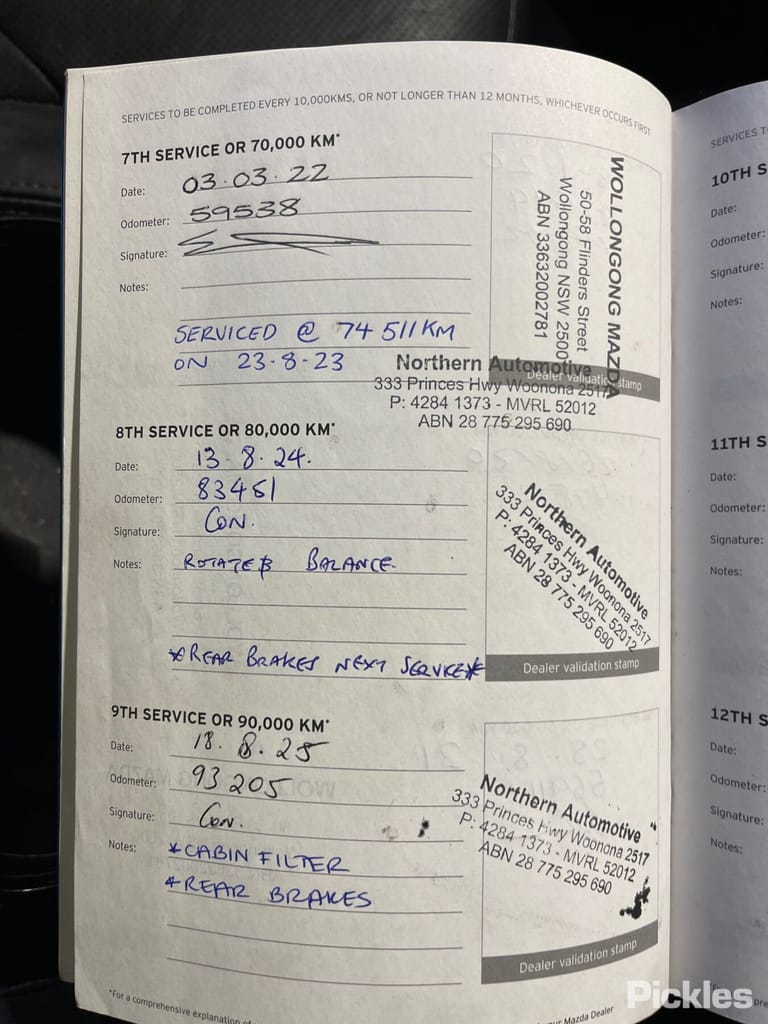 SERVICES TO BE COMPLETED EVERY 10,000KMS, OR NOT LONGER THAN 12 MONTHS, WHICHEVER OCCURS FIRST
7TH SERVICE OR 70,000 KM*
Date: 03.03.22
Odometer: 59538
Signature:
Notes:
SERVICED @ 74511KM
ON 23-8-23
WOLLONGONG MAZDA
50-58 Flinders Street
Wollongong NSW 2500
ABN 33632002781
Dealer validation stamp
Northern Automotive
333 Princes Hwy Woonona 2517
P: 4284 1373 - MVRL 52012
ABN 28 775 295 690
8TH SERVICE OR 80,000 KM*
Date: 13.8.24.
Odometer: 83451
Signature: CON.
Notes: ROTATE & BALANCE.
*REAR BRAKES NEXT SERVICE*
Northern Automotive
333 Princes Hwy Woonona 2517
P: 4284 1373 - MVRL 52012
ABN 28 775 295 690
Dealer validation stamp
9TH SERVICE OR 90,000 KM*
Date: 18.8.25
Odometer: 93205
Signature: Con.
Notes: *CABIN FILTER
*REAR BRAKES
Northern Automotive
333 Princes Hwy Woonona 2517
P: 4284 1373 - MVRL 52012
ABN 28 775 295 690
Dealer validation stamp
*For a comprehensive explanation of
Mazda Dealer
SERVICES
10TH S
Date:
Odometer:
Signature:
Notes:
11TH S
Date:
Odometer:
Signature:
Notes:
12TH S
Date:
Odometer:
Signature:
Notes:
Pickles